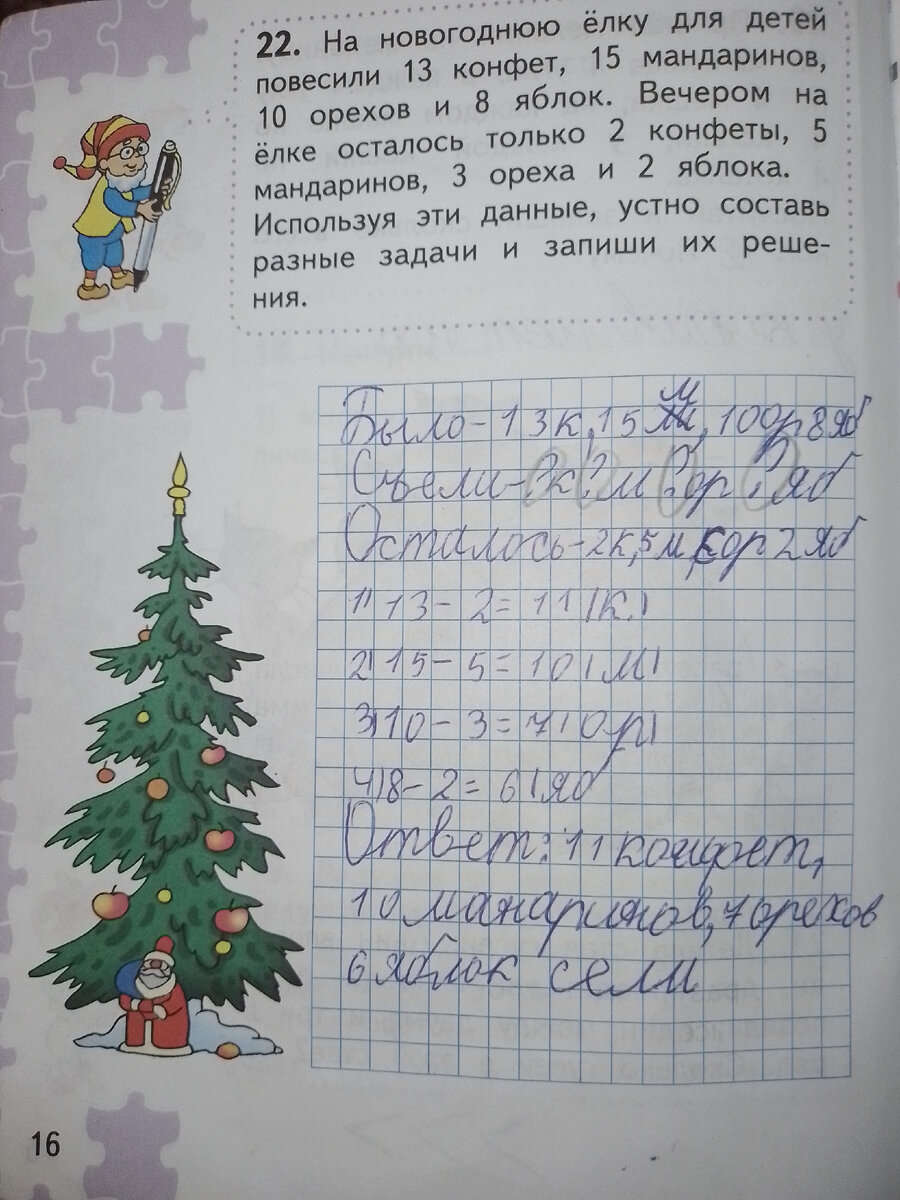 22. На новогоднюю ёлку для детей
повесили 13 конфет, 15 мандаринов,
10 орехов и 8 яблок. Вечером на
ёлке осталось только 2 конфеты, 5
мандаринов, 3 ореха и 2 яблока.
Используя эти данные, устно составь
разные задачи и запиши их реше-
ния.
Было-13к,15м,10ор8яб
Съели-?к?м?ор?яб
Осталось-2к,5м, ор2яб
1) 13-2=11(к.)
2) 15-5=10(м)
3) 10-3=7(ор)
4) 8-2=6(яб
Ответ: 11 конфет,
10 мандаринов, 7 орехов
6 яблок сели
16